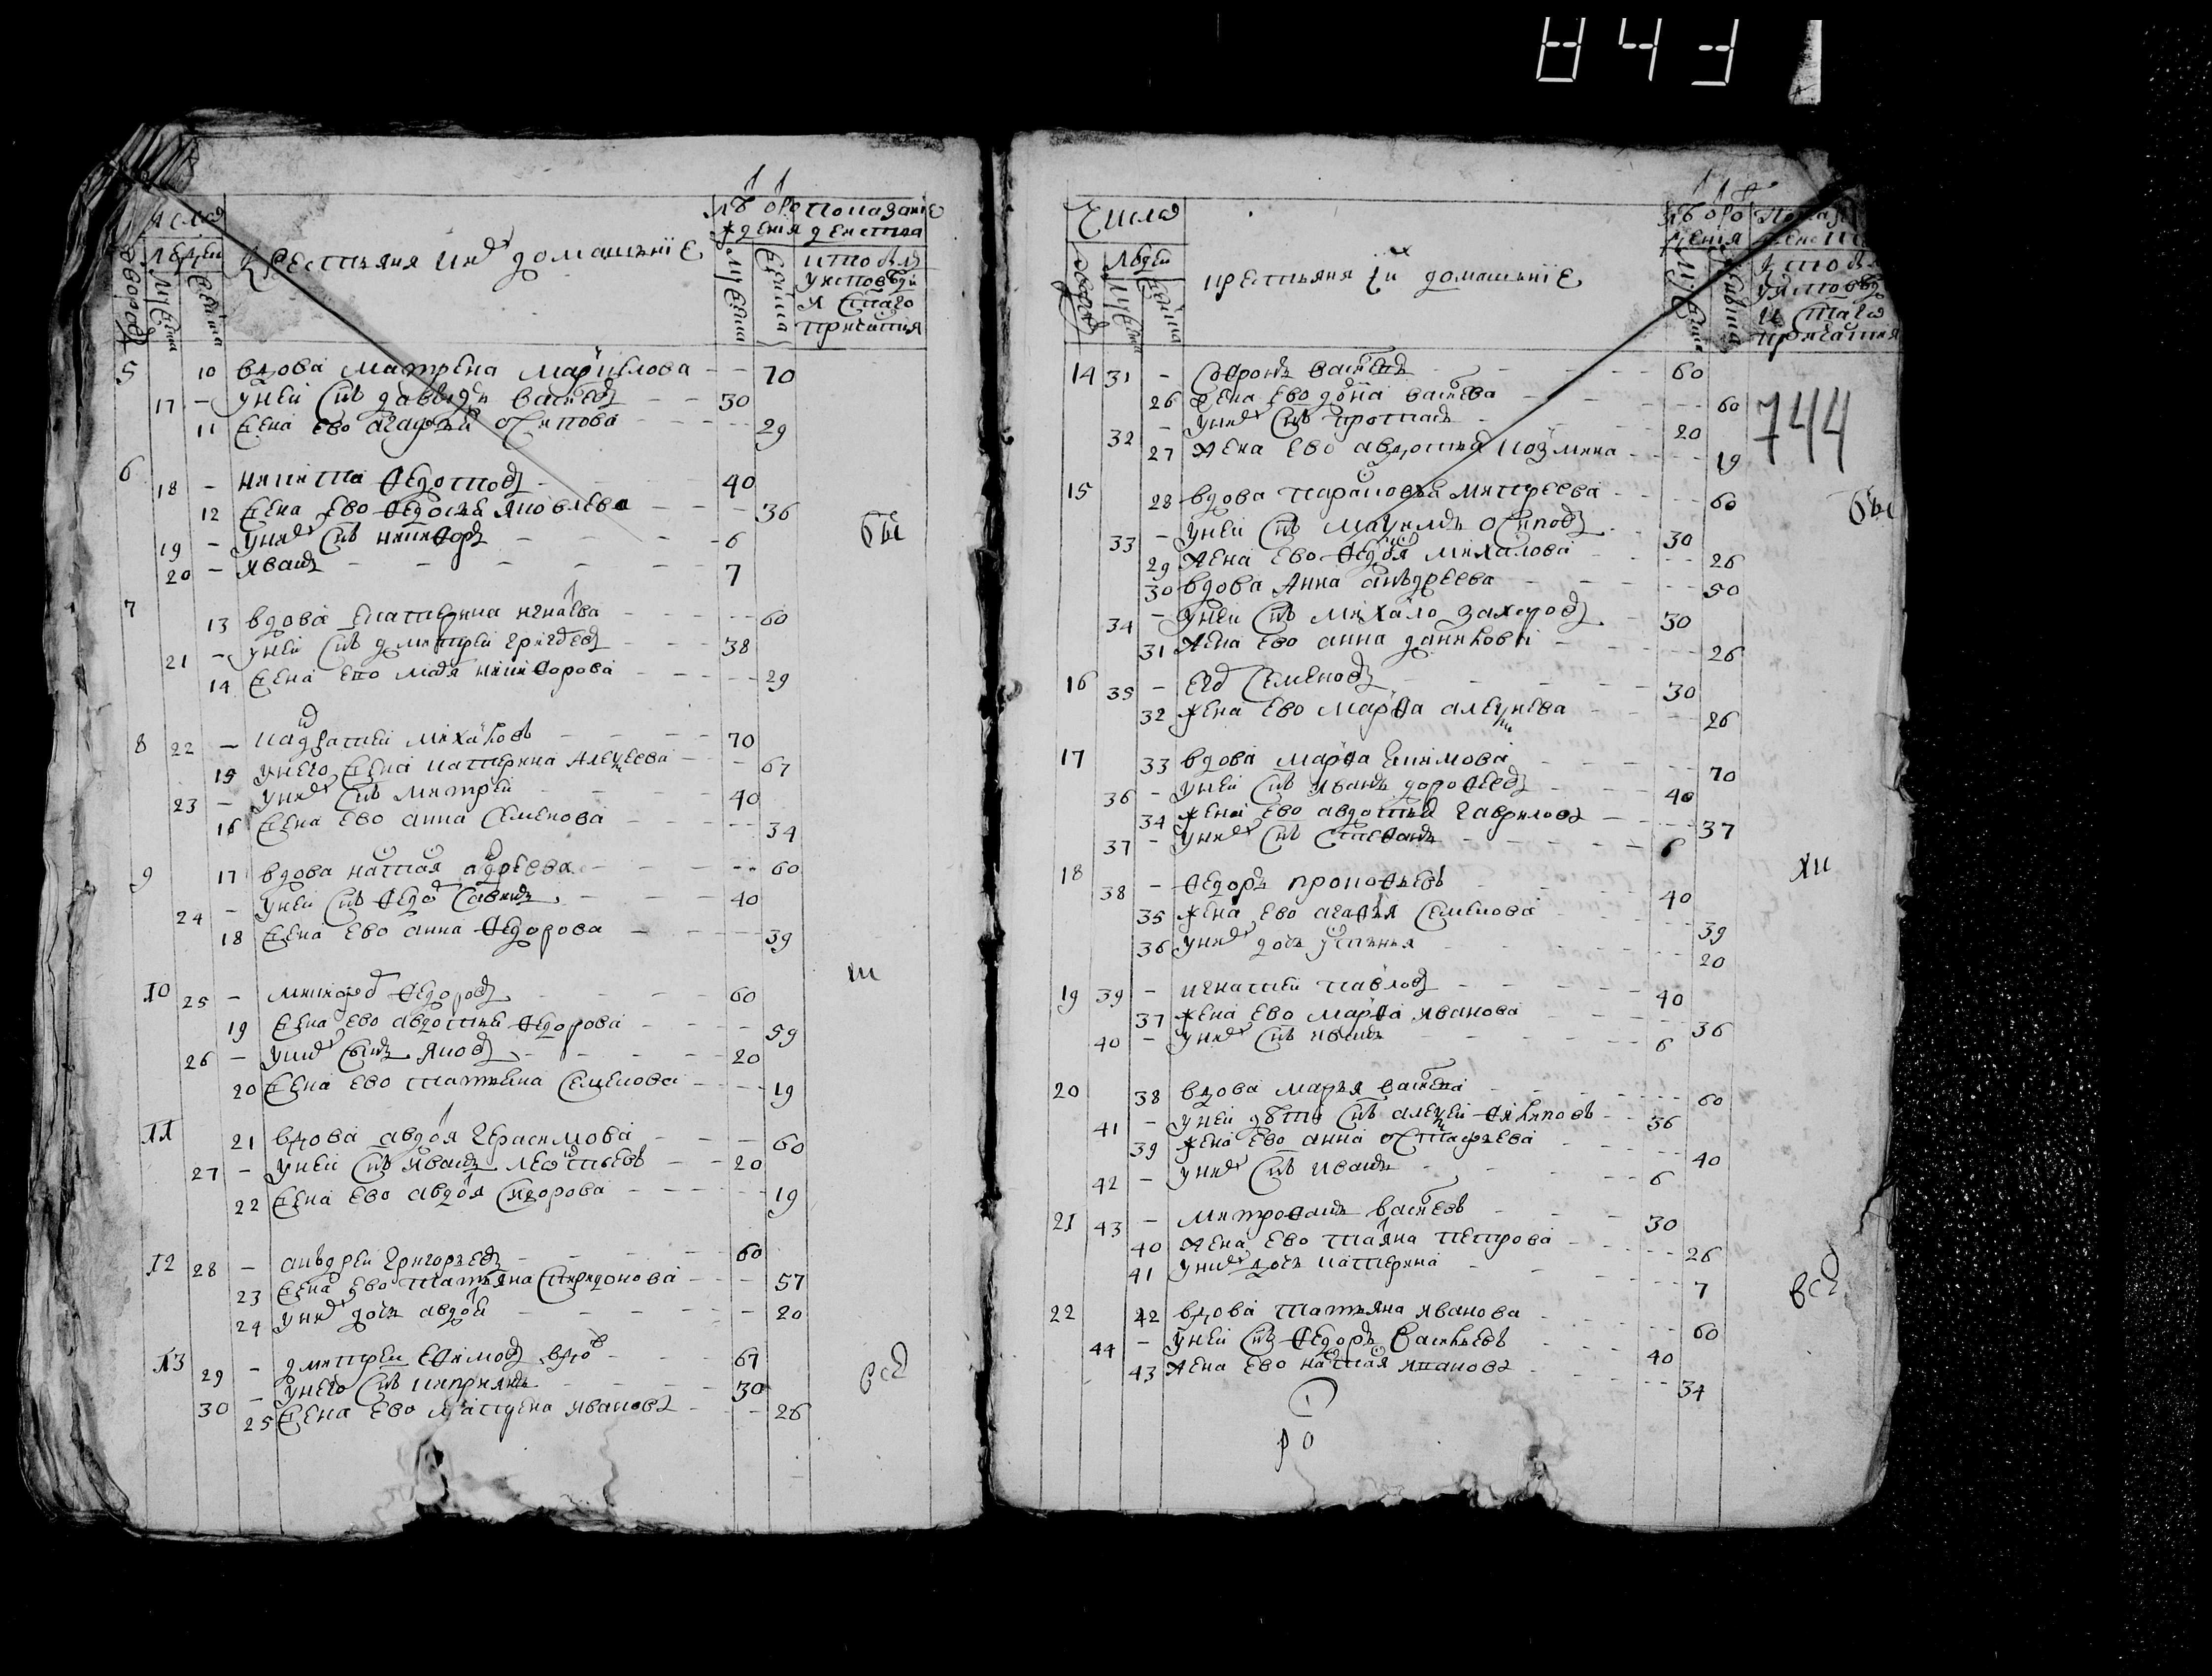 843
Числа
Людей
дворов
мужеска
женска
крестьяня ихъ домашнïе
лѣ оро
ждения
мужеска
женска
показанïе
действа
кто былъ
у исповѣди
и святаго
причастия
5 10 вдова матрена маркелова - - 70
17 - у ней снъ давыдъ васильевъ - - 30
11 жена ево агафья осипова - - 29
6 18 - никита федотовъ - 40
12 жена ево федосья яковлева - - 36
19 - у нихъ снъ никифоръ - - 6
20 - яванъ - - 7
7 13 вдова екатерина игнатева - - 60
21 - у ней снъ дмитрей григоревъ - - 38
14 жена ево марья никифорова - - 29
8 22 - кадратией михайловъ - - 70
15 у него жена катерина алексеева - - 67
23 - у нихъ снъ митрей - - 40
16 жена ево анна семенова - - 34
9 17 вдова настася андреева - - 60
24 - у ней снъ федоръ савинъ - - 40
18 жена ево анна федорова - - 39
10 25 - никифоръ федоровъ - - 60
19 жена ево авдотья федорова - - 59
26 - у нихъ сынъ яковъ - - 20
20 жена ево татьяна семенова - - 19
11 21 вдова авдотя герасимова - - 60
27 - у ней снъ яванъ леонтьевъ - - 20
22 жена ево авдотя сидорова - - 19
12 28 - аньдрей григорьевъ - - 60
23 жена ево татьяна спиридонова - - 57
24 у нихъ дочь авдотя - - 20
13 29 - дмитрей ефимовъ вдовъ - 67
30 - у него снъ киприянъ - - 30
25 жена ево матрена яванова - - 26
бы
ли
всѣ
Числа
Людей
дворов
мужеска
женска
крестьяня ихъ домашнïе
лѣ оро
ждения
мужеска
женска
кто былъ
у исповѣди
и святаго
причастия
744
14 31 - софронъ васильевъ - - 60
26 жена ево васильева - - 60
32 - у нихъ снъ протасъ - - 20
27 жена ево авдотья козмина - - 19
15 28 вдова парасковья митреева - - 60
33 - у ней снъ максимъ осиповъ - 30
29 жена ево федося михайлова - - 26
30 вдова анна аньдреева - - 50
34 - у ней снъ михайло захаровъ - 30
31 жена ево анна данилова - - 26
16 35 - егоръ семеновъ - - 30
32 жена ево марфа алексеева - - 26
17 33 вдова марфа екимова - - 70
36 - у ней снъ яванъ дорофеевъ - - 40
34 жена ево авдотья гаврилова - - 37
37 - у нихъ снъ степанъ - - 6
18 38 - федоръ прокофьевъ - - 40
35 жена ево агафья семенова - - 39
36 у нихъ дочь устинья - - 20
19 39 - игнатией павловъ - - 40
37 жена ево марфа яванова - - 36
40 - у нихъ снъ яванъ - - 6
20 38 вдова марья васильева - - 60
41 - у ней дѣти снъ алексей филиповъ - - 36
39 жена ево анна остафьева - - 40
42 - у нихъ снъ иванъ - - 6
21 43 - митрофанъ васильевъ - - 30
40 жена ево татяна петрова - - 26
41 у нихъ дочь катерина - - 7
22 42 вдова татьяна яванова - - 60
44 - у ней снъ федоръ васильевъ - - 40
43 жена ево настася иванова - - 34
бы
ли
всѣ